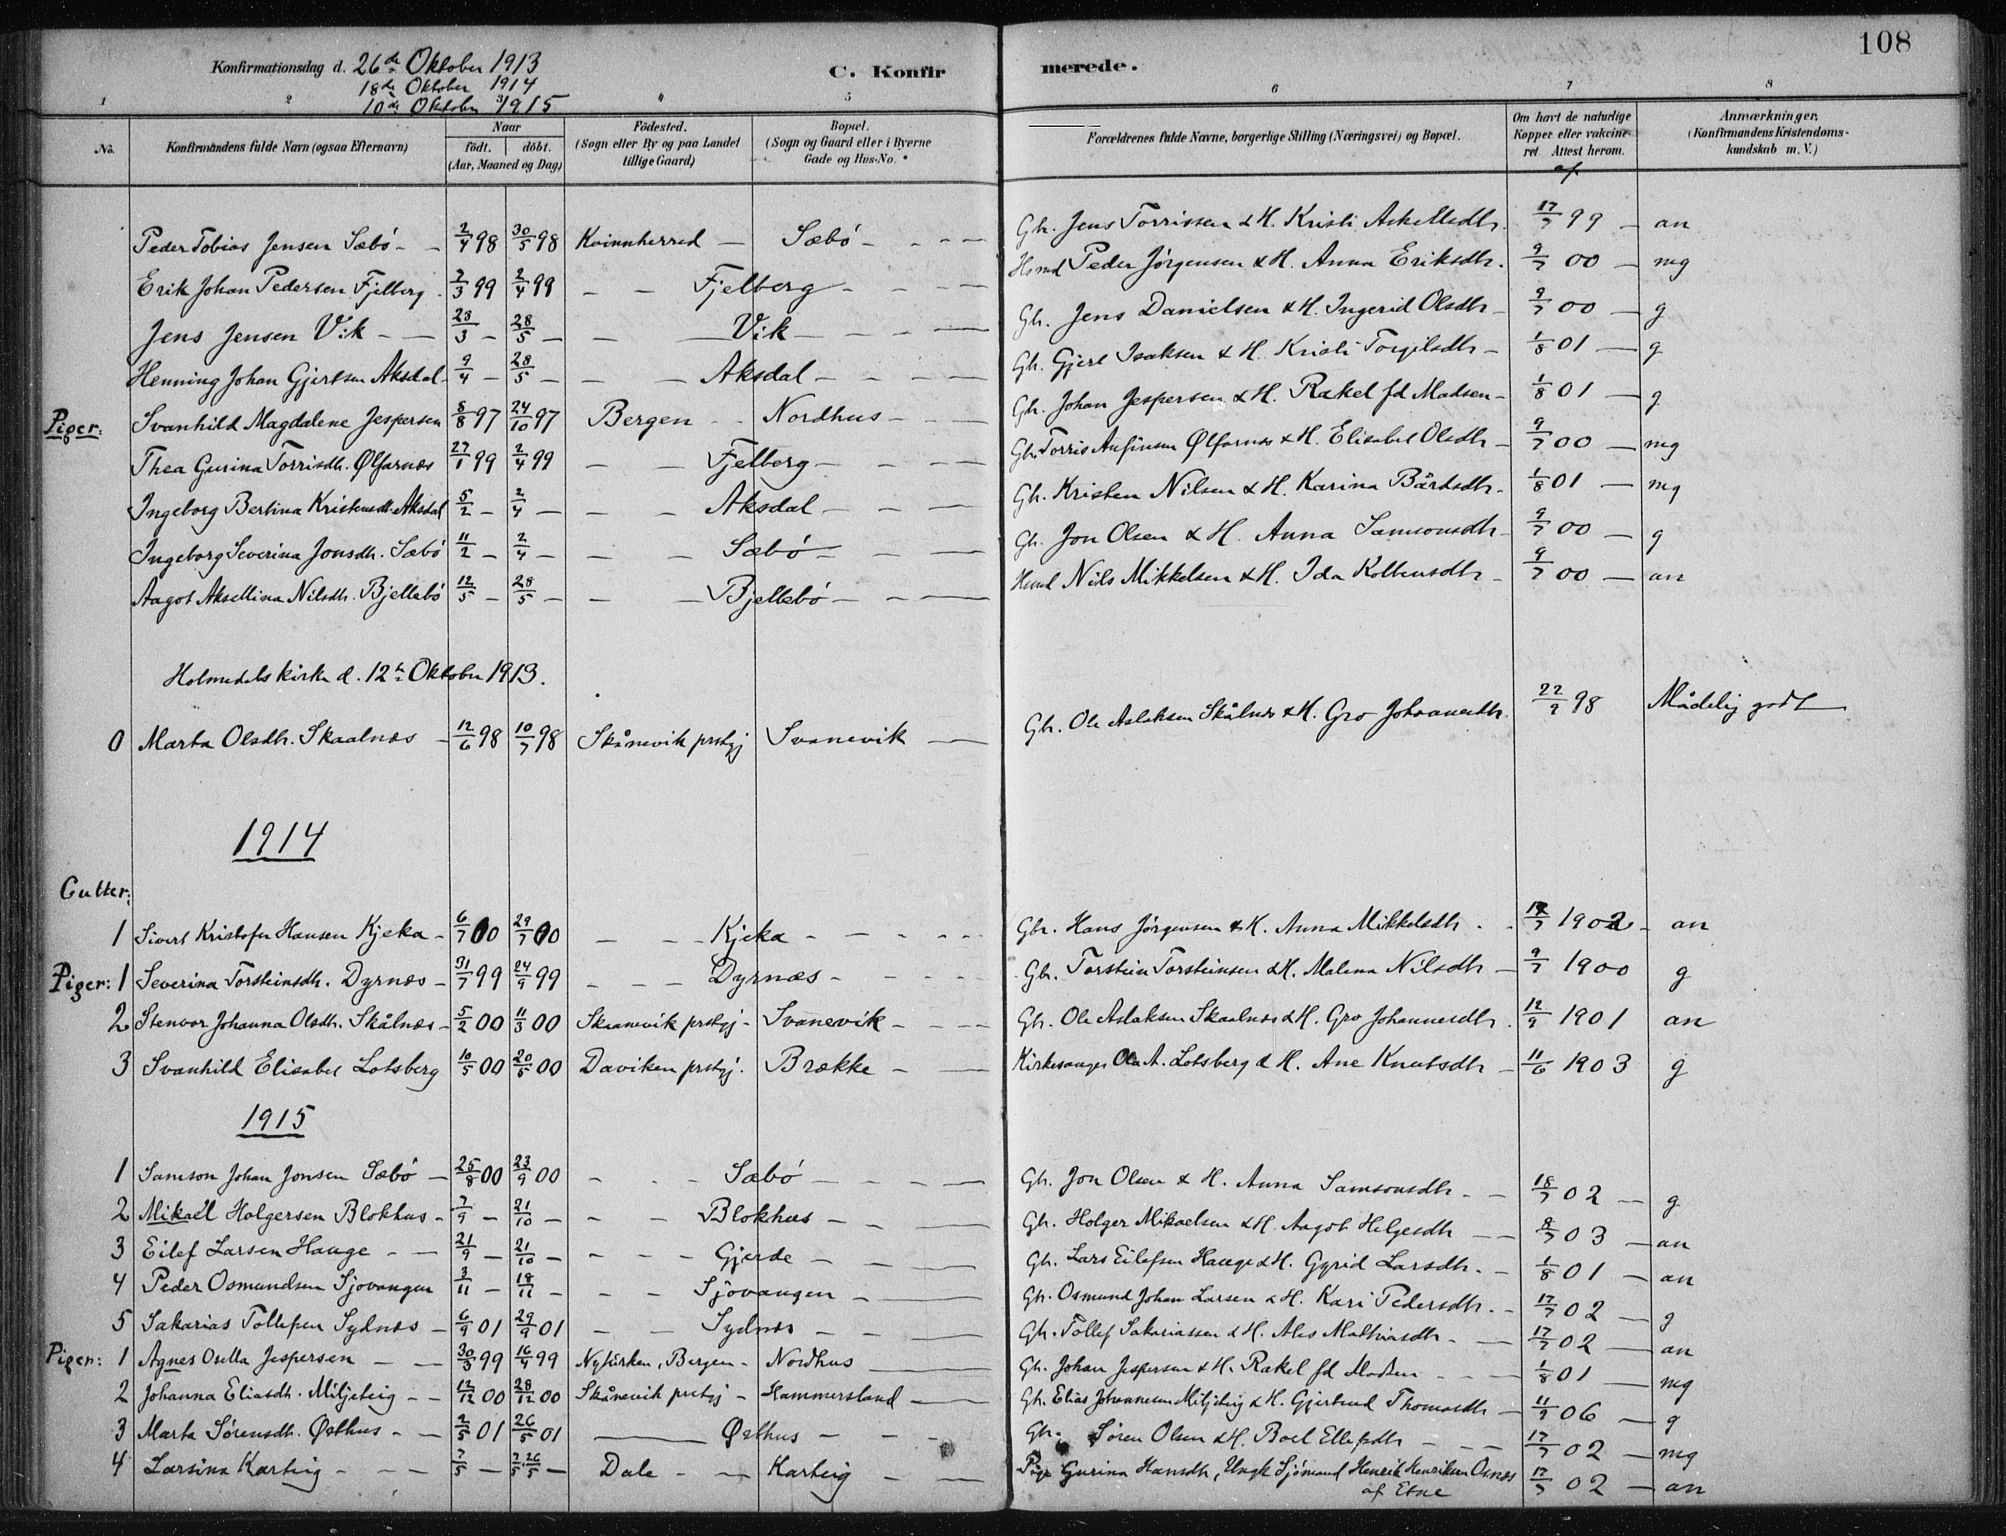 108
Konfirmationsdag d. 26de Oktober 1913
18de Oktober 1914
10de Oktober 1915
C. Konfirmerede.
1 2 3 4 5 6 7 8
No. Konfirmandens fulde Navn (ogsaa Efternavn) Naar födt. döbt. (Aar, Maaned og Dag) Födested. (Sogn eller By og paa Landet tillige Gaard) Bopæl. (Sogn og Gaard eller i Byerne Gade og Hus-No. Forældrenes fulde Navne, borgerlige Stilling (Næringsvei) og Bopæl. Om havt de naturlige Kopper eller vakcineret. Attest herom. Anmærkninger, (Konfirmandens Kristendomskundskab m. V.)
af
Peder Tobias Jensen Sæbö - 2/4 98 30/5 98 Kvinnherred - Sæbö - Gbr. Jens Torrissen & H. Kristi Askellsdtr. 17/7 99 - an
Erik Johan Pedersen Fjelberg. 2/3 99 2/4 99 - - Fjelberg - Hsmd Peder Jørgensen & H. Anna Eriksdtr. 9/7 00 - mg
Jens Jensen Vik - 23/3 - 28/5 - - Vik - Gbr. Jens Danielsen & H. Ingerid Olsdtr - 9/7 00 - g
Henning Johan Gjertsen Aksdal - 9/4 - 28/5 - - - Aksdal - Gbr. Gjert Isaksen & H. Kristi Torgilsdtr - 1/8 01 - g
Piger: Svanhild Magdalene Jespersen 8/8 97 24/10 97 Bergen - Nordhus - Gbr. Johan Jespersen & H. Rakel fd Madsen - 1/8 01 - g
Thea Gurina Torrisdtr. Ølfarnæs 27/1 99 2/4 99 - - Fjelberg - Gbr. Torris Anfinsen Ølfarnæs & H. Elisabet Olsdtr - 9/7 00 - mg
Ingeborg Bertina Kristensdtr Aksdal 5/2 - 2/4 - - - Aksdal - Gbr. Kristen Nilsen & H. Karina Bårdsdtr - 1/8 01 - mg
Ingeborg Severina Jonsdtr. Sæbö 11/2 - 2/4 - - - Sæbö - Gbr. Jon Olsen & H. Anna Samsonsdtr - 9/7 00 - g
Aagot Aksellina Nilsdtr. Bjellebö 12/5 - 28/5 - - - Bjellebö - Hsmd Nils Mikkelsen & H. Ida Kolbensdtr - 9/7 00 - an
Holmedals kirke d. 12te Oktober 1913.
0 Marta Olsdtr. Skaalnæs - 12/6 98 10/7 98 Skånevik prstgj Svanevik - Gbr. Ole Aslaksen Skålnæs & H. Gro Johannesdtr. 22/9 98 Mådelig godt
1914
Gutter:
1 Sivert Kristofer Hansen Kjeka - 6/7 00 29/7 00 - - - Kjeka - Gbr. Hans Jørgensen & H. Anna Mikkelsdtr. 17/7 1902 - an
Piger: 1 Severina Torsteinsdtr. Dyrnæs - 31/7 99 24/9 99 - - - Dyrnæs - Gbr. Torstein Torsteinsen & H. Malena Nilsdtr - 9/7 1900 g
2 Stenvor Johanna Olsdtr. Skålnæs - 5/2 00 11/3 00 Skaanevik prstgj - Svanevik - Gbr. Ole Aslaksen Skaalnæs & H. Gro Johannesdtr. 12/9 1901 an
3 Svanhild Elisabet Lotsberg 10/5 00 20/5 00 Daviken prstgj. Brække - Kirkesanger Ole A. Lotsberg & H. Ane Knutsdtr - 11/6 1903 g
1915
1 Samson Johan Jonsen Sæbö - 25/8 00 23/9 00 - - - Sæbö - Gbr. Jon Olsen & H. Anna Samsonsdtr - 18/7 02 - g
2 Mikael Holgersen Blokhus - 7/9 - 21/10 - - - Blokhus - Gbr. Holger Mikaelsen & H. Aagot Helgesdtr - 8/7 03 - an
3 Eilef Larsen Hauge - 21/9 - 21/10 - - - Gjerde - Gbr. Lars Eilefsen Hauge & H. Gyrid Larsdtr. - 1/8 01 - an
4 Peder Osmundsen Sjovangen 3/11 - 18/11 - - - Sjövangen - Gbr. Osmund Johan Larsen & H. Kari Pedersdtr. - 17/7 02 - g
5 Sakarias Tollefsen Sydnæs - 6/9 01 29/9 01 - - Sydnæs - Gbr. Tollef Sakariassen & H. Ales Mathiasdtr - 17/7 02 - an
Piger: 1 Agnes Osella Jespersen - 30/3 99 16/4 99 Nykirken, Bergen - Nordhus - Gbr. Johan Jespersen & H. Rakel fd Madsen - 1/8 01 - mg
2 Johanna Eliasdtr. Miljeteig - 12/12 00 28/12 00 Skånevik prstgj - Hammersland - Gbr. Elias Johannesen Miljeteig & H. Gjertrud Thomasdtr - 11/9 06 - g
3 Marta Sörensdtr. Østhus - 2/5 01 26/5 01 - Østhus - Gbr. Sören Olsen & H. Boel Ellefsdtr - 17/7 02 - mg
4 Larsina Karteig - 7/5 - 26/5 - Dale - Karteig - Pige Gurina Hansdtr, Ungk Sjömand Henrik Henriksen Osnes af Etne 17/7 02 - an